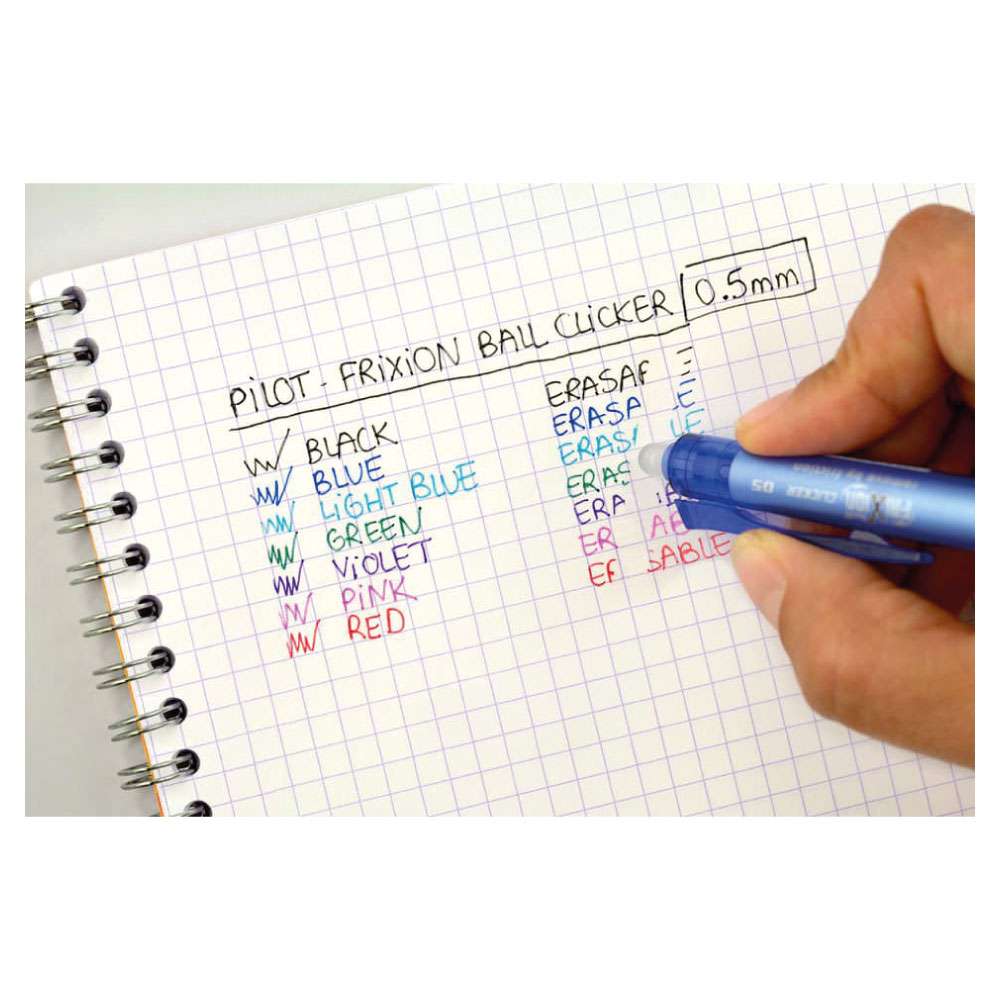 PiLOT - FRiXiON BALL CLiCKER 0.5mm
BLACK
BLUE
LiGHT BLUE
GREEN
ViOLET
PiNK
RED
ERASA E
ERASA LE
ERAS LE
ERAS
ERA
ER AB
E SABLE
FRiXiON CLICKER 05